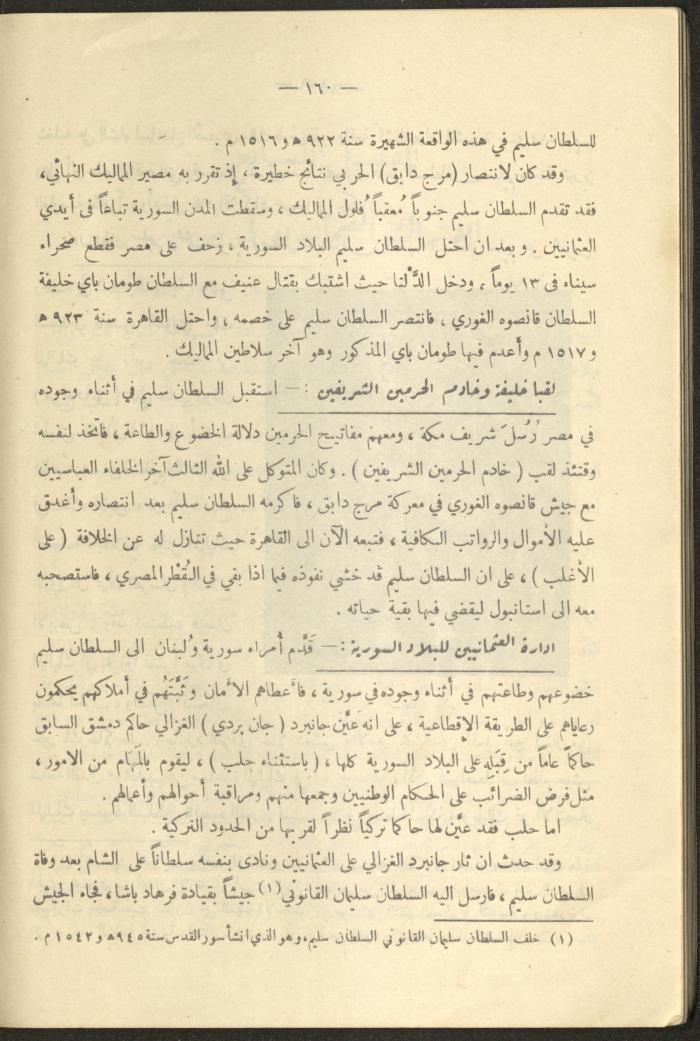 — ١٦٠ —
للسلطان سليم في هذه الواقعة الشهيرة سنة ٩٢٢ ھ و ١٥١٦ م .
وقد كان لانتصار (مرج دابق) الحربي نتائج خطيرة ، إذ تقرر به مصير المماليك النهائي،
فقد تقدم السلطان سليم جنوباً مُعقباً فُلول المماليك ، وسقطت المدن السورية تباعاً فى أيدي
العثمانيين . وبعد ان احتل السلطان سليم البلاد السورية ، زحف على مصر فقطع صحراء
سيناء فى ١٣ يوماً ، ودخل الدَّلتا حيث اشتبك بقتال عنيف مع السلطان طومان باي خليفة
السلطان قانصوه الغوري ، فانتصر السلطان سليم على خصمه ، واحتل القاهرة سنة ٩٢٣ ھ
و ١٥١٧ م وأعدم فيها طومان باي المذكور وهو آخر سلاطين المماليك .
لقبا خليفة وخادم الحرمين الشريفين : — استقبل السلطان سليم في أثناء وجوده
في مصر رُسُلَ شريف مكة ، ومعهم مفاتيح الحرمين دلالة الخضوع والطاعة ، فاتخذ لنفسه
وقتئذ لقب ( خادم الحرمين الشريفين ) . وكان المتوكل على الله الثالث آخر الخلفاء العباسيين
مع جيش قانصوه الغوري في معركة مرج دابق ، فاكرمه السلطان سليم بعد انتصاره وأغدق
عليه الأموال والرواتب الكافية ، فتبعه الآن الى القاهرة حيث تنازل له عن الخلافة ( على
الأغلب ) ، على ان السلطان سليم قد خشي نفوذه فيما اذا بقي في القُطْر المصري ، فاستصحبه
معه الى استانبول ليقضي فيها بقية حياته .
ادارة العثمانيين للبلاد السورية : — قَدَّم أمراء سورية ولُبنان الى السلطان سليم
خضوعهم وطاعتهم في أثناء وجوده في سورية ، فأعطاهم الأمان وثَبَّتَهُم في أملاكهم يحكمون
رعاياهم على الطريقة الإقطاعية ، على انه عَيَّن جانبرد ( جان بردي ) الغزالي حاكم دمشق السابق
حاكماً عاماً من قِبَلِهِ على البلاد السورية كلها ، ( باستثناء حلب ) ، ليقوم بالمَهَام من الامور ،
مثل فرض الضرائب على الحكام الوطنيين وجمعها منهم ومراقبة أحوالهم وأعمالهم .
اما حلب فقد عيَّن لها حاكما تركياً نظراً لقربها من الحدود التركية .
وقد حدث ان ثار جانبرد الغزالي على العثمانيين ونادى بنفسه سلطاناً على الشام بعد وفاة
السلطان سليم ، فارسل اليه السلطان سليمان القانوني(١) جيشاً بقيادة فرهاد باشا، فجاء الجيش
(١) خلف السلطان سليمان القانوني السلطان سليم، وهو الذي انشأ سور القدس سنة ٩٤٥ ھ و ١٥٤٢ م .